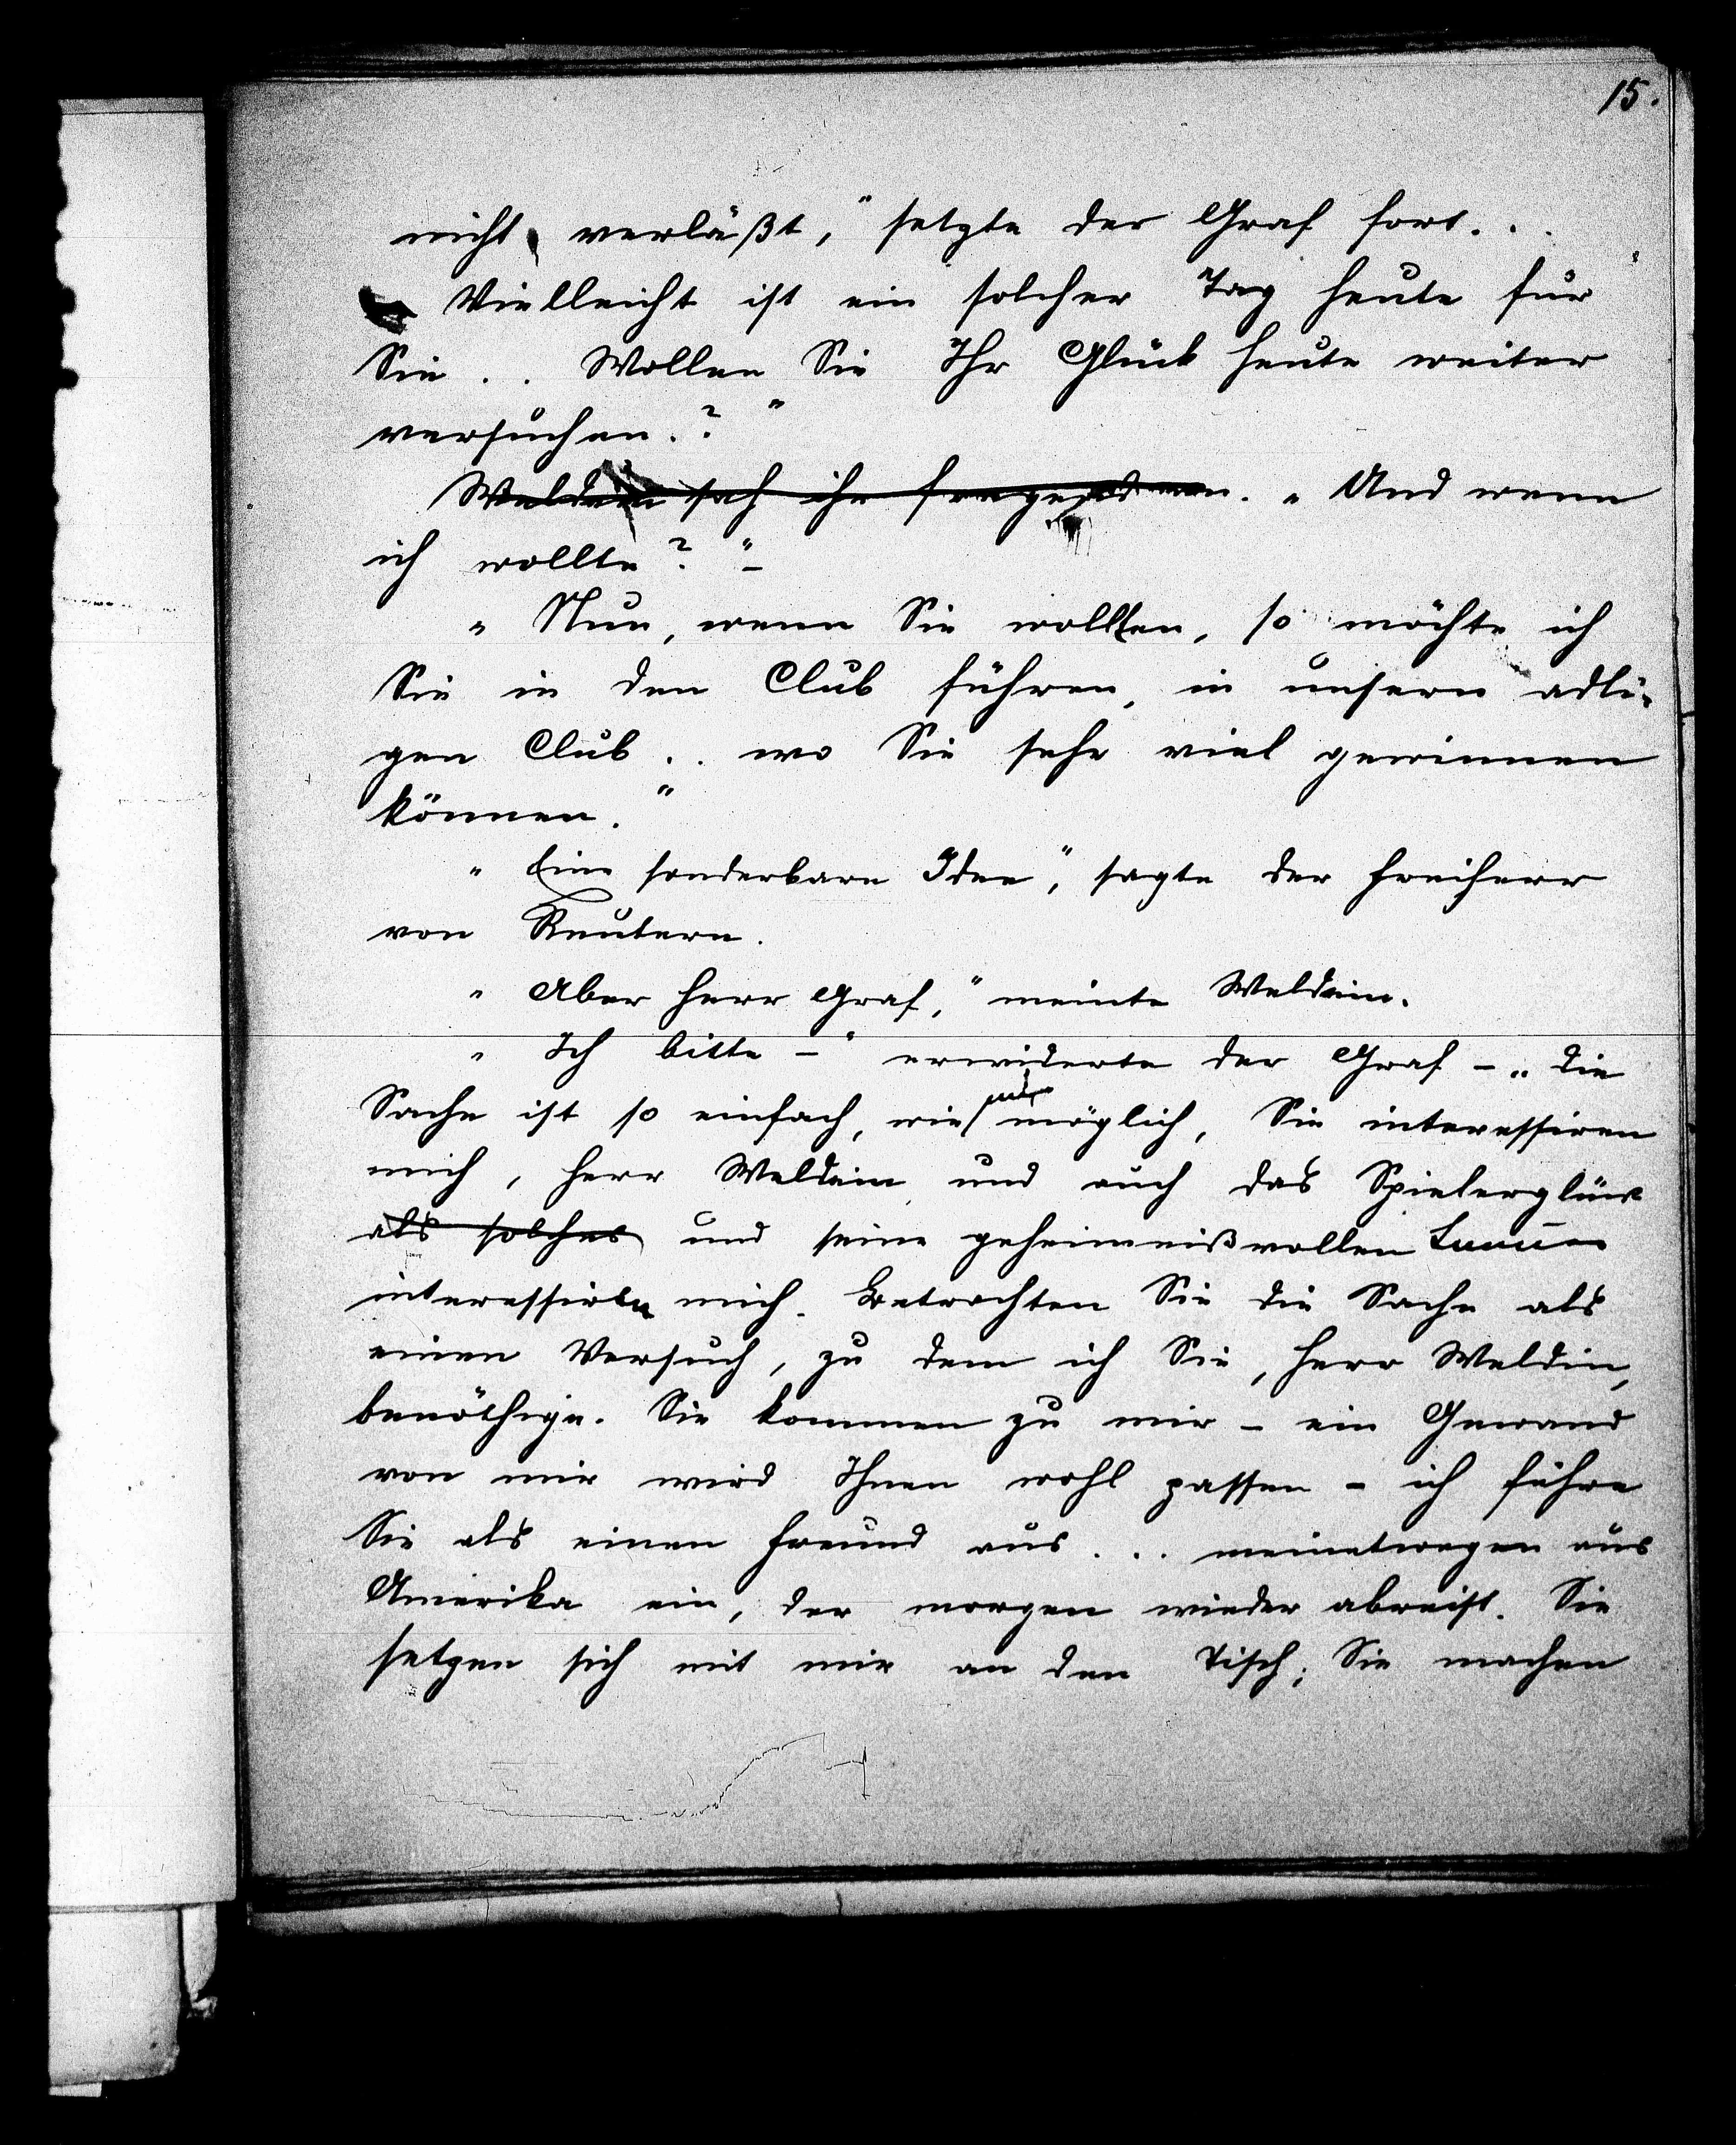 15.
nicht verläßt," setzte der Graf fort...
Vielleicht ist ein solcher Tag heute für
Sie .. Wollen Sie Ihr Glück heute weiter
versuchen.?"
Weldein sah ihn fragend an. „Und wenn
ich wollte?" –
„Nun, wenn Sie wollten, so möchte ich
Sie in den Club führen, in unsern adli-
gen Club .. wo Sie sehr viel gewinnen
können."
„Eine sonderbare Idee," sagte der Freiherr
von Reutern.
„Aber Herr Graf," meinte Weldein.
„Ich bitte –" erwiderte der Graf – „die
Sache ist so einfach, wie nur möglich, Sie interessiren
mich, Herr Weldein und auch das Spielerglück
als solches und seine geheimnißvollen Launen
interessiren mich. Betrachten Sie die Sache als
einen Versuch, zu dem ich Sie, Herr Weldin,
benöthige. Sie kommen zu mir – ein Gewand
von mir wird Ihnen wohl passen – ich führe
Sie als einen Freund aus ... meinetwegen aus
Amerika ein, der morgen wieder abreist. Sie
setzen sich mit mir an den Tisch; Sie machen